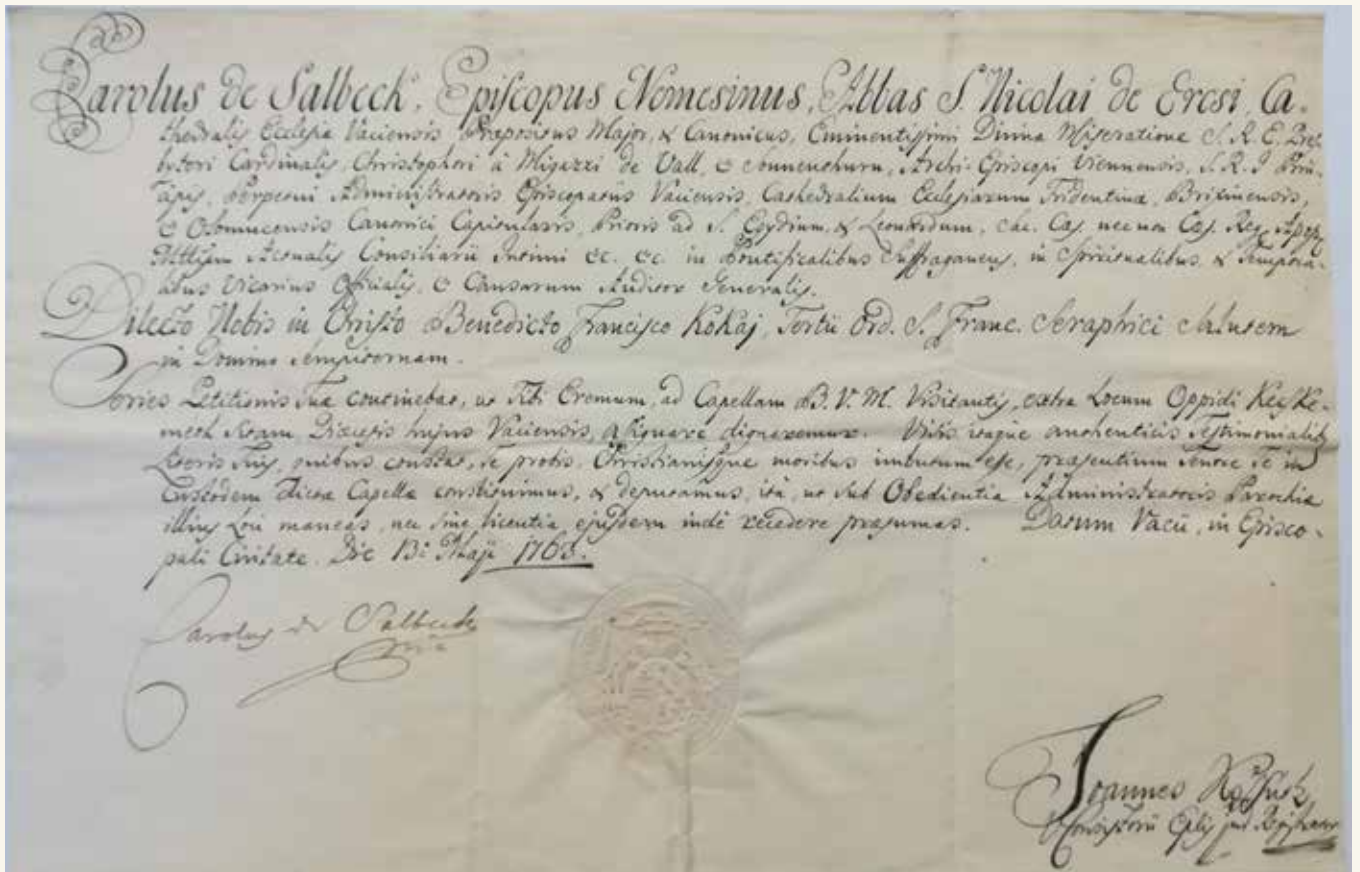 Carolus de Salbeck, Episcopus Nomesinus, Abbas S. Nicolai de Eresi, Ca-
thedralis Ecclesiæ Vaciensis Præpositus Major, & Canonicus, Eminentissimi Divina Miseratione S. R. E. Pres-
biteri Cardinalis, Christophori à Migazzi de Vall, & Sonnenthurn, Archi-Episcopi Viennensis, S. R. I. Prin-
cipis, Perpetui Administratoris Episcopatus Vaciensis, Cathedralium Ecclesiarum Tridentinæ, Brixinensis,
& Olomucensis Canonici Capitularis, Prioris ad S. Egydium, & Leonardum, Sac. Cæs. nec non Cæs. Reg. Apop.
Mttum Actualis Consiliarii Intimi &c. &c. in Pontificalibus Suffraganeus, in Spiritualibus, & Tempora-
libus Vicarius Officialis, & Causarum Auditor Generalis.
Dilecto Nobis in Christo Benedicto Francisco Kokaj, Tertii Ord. S. Franc. Seraphici Salutem
in Domino Sempiternam.
Series Petitionis Tuæ continebat, ut Tibi Eremum, ad Capellam B. V. M. Visitantis, extra Locum Oppidi Kecske-
meth sitam, Diæcesis hujus Vaciensis, assignare dignaremur. Visis itaque authenticis Testimonialibus
Literis Tuis, quibus constat, te probis, Christianisque moribus imbutum esse, præsentium tenore Te in
Custodem dictæ Capellæ constituimus, & deputamus, ità, ut sub Obedientia Administratoris Parochiæ
illius Loci maneas, nec sine licentia ejusdem indè recedere præsumas. Datum Vacii, in Episco-
pali Civitate. Die 13 Maji 1763.
Carolus de Salbeck
Joannes
Consistorii Eplis jur. Registrator